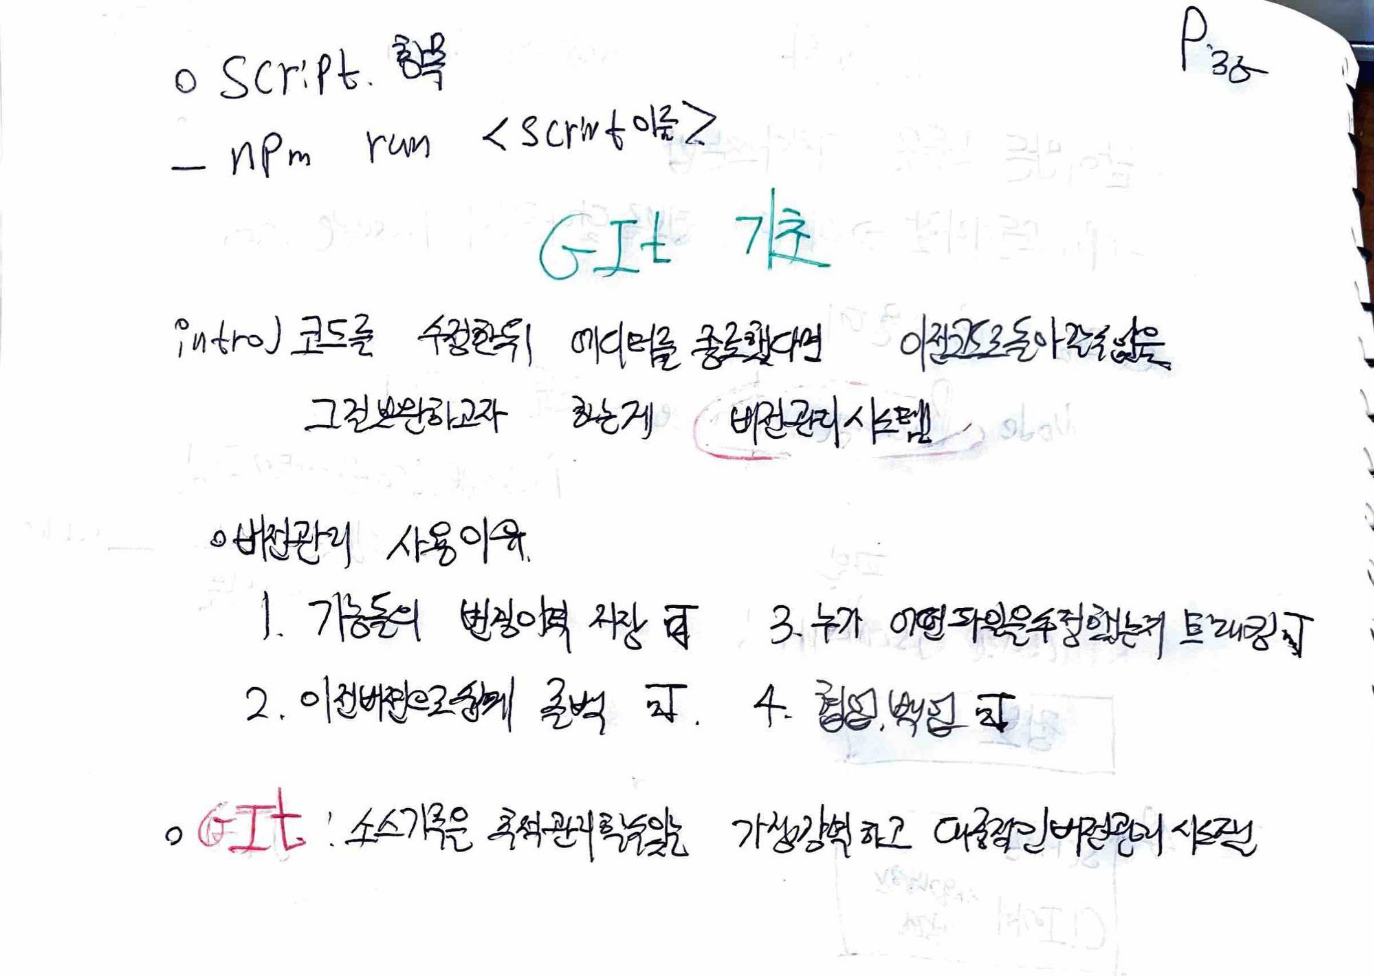 P.35
o Script. 항목
- npm run <script이름>
GIt 기초
intro) 코드를 수정한뒤 에디터를 종료했다면 이전코드로돌아갈수없음
그걸보완하고자 하는게 버전관리시스템
o 버전관리 사용이유.
1. 기능들의 변경이력 저장 可 3. 누가 어떤파일을수정했는지 트래킹 可
2. 이전버전으로쉽게 롤백 可. 4. 협업, 백업 可
o GIt : 소스기록은 추적관리할수있는 가장강력하고 대중적인버전관리시스템